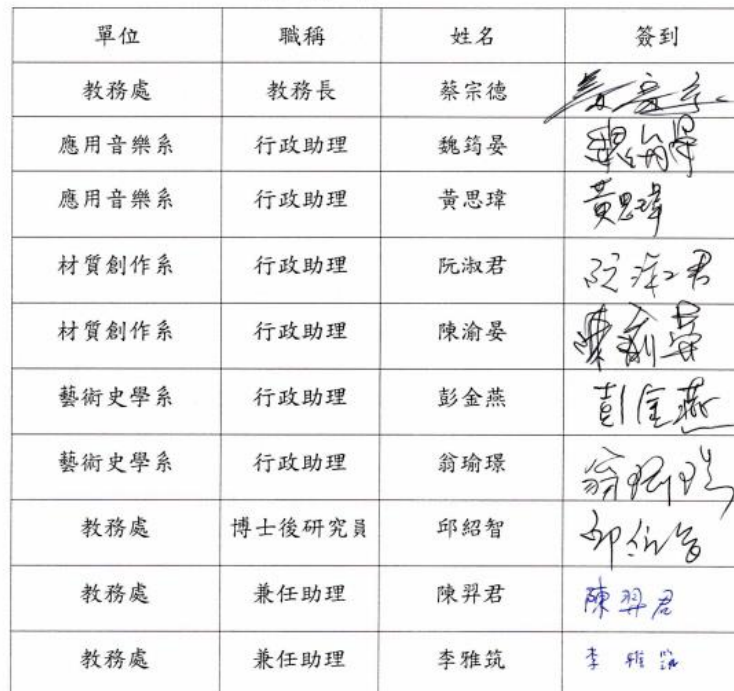 單位 職稱 姓名 簽到
教務處 教務長 蔡宗德
應用音樂系 行政助理 魏筠晏
應用音樂系 行政助理 黃思瑋 黃思瑋
材質創作系 行政助理 阮淑君 阮淑君
材質創作系 行政助理 陳渝晏
藝術史學系 行政助理 彭金燕 彭金燕
藝術史學系 行政助理 翁瑜璟
教務處 博士後研究員 邱紹智
教務處 兼任助理 陳羿君 陳羿君
教務處 兼任助理 李雅筑 李雅筑